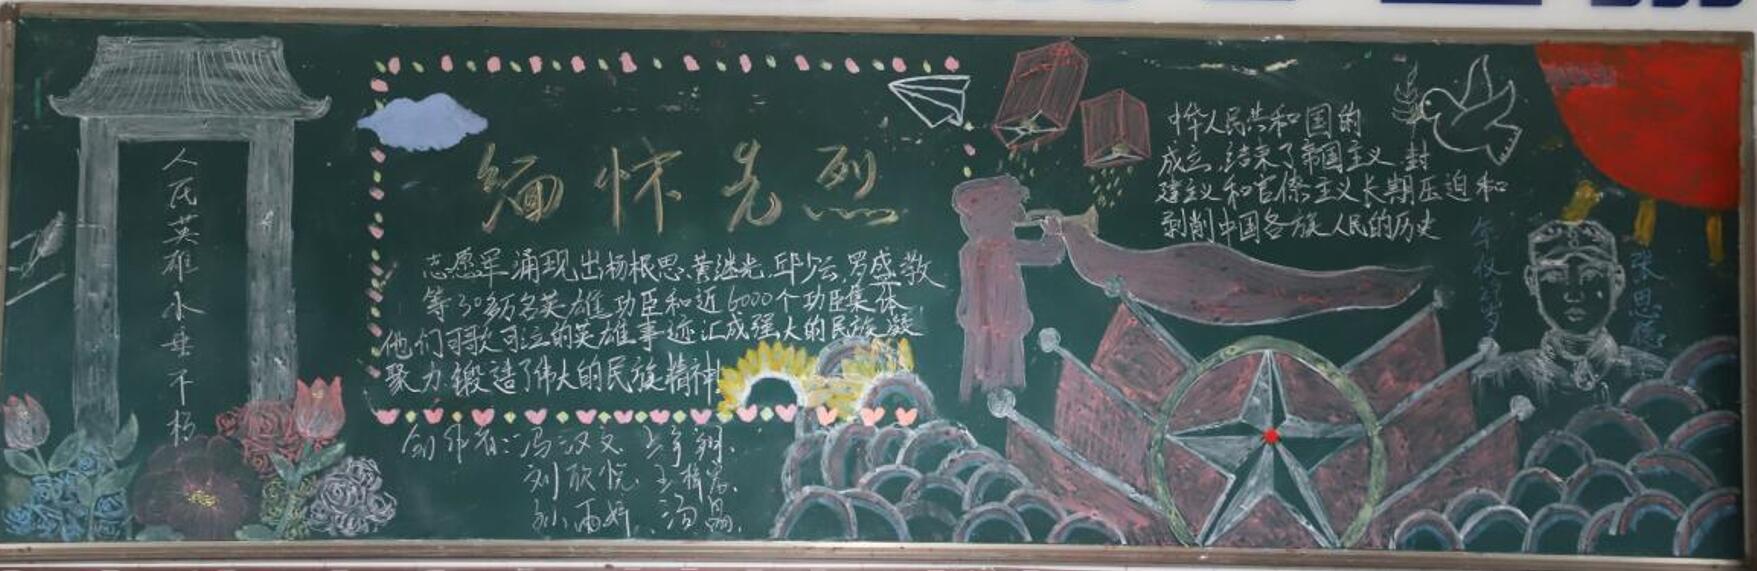 人民英雄永垂不朽
缅怀先烈
志愿军涌现出杨根思、黄继光、邱少云、罗盛教
等30多万名英雄功臣和近6000个功臣集体,
他们可歌可泣的英雄事迹汇成强大的民族凝
聚力,锻造了伟大的民族精神!
创作者:冯汉文
刘欣悦
中华人民共和国的
成立,结束了帝国主义、封
建主义和官僚主义长期压迫和
剥削中国各族人民的历史
张思德
年仅